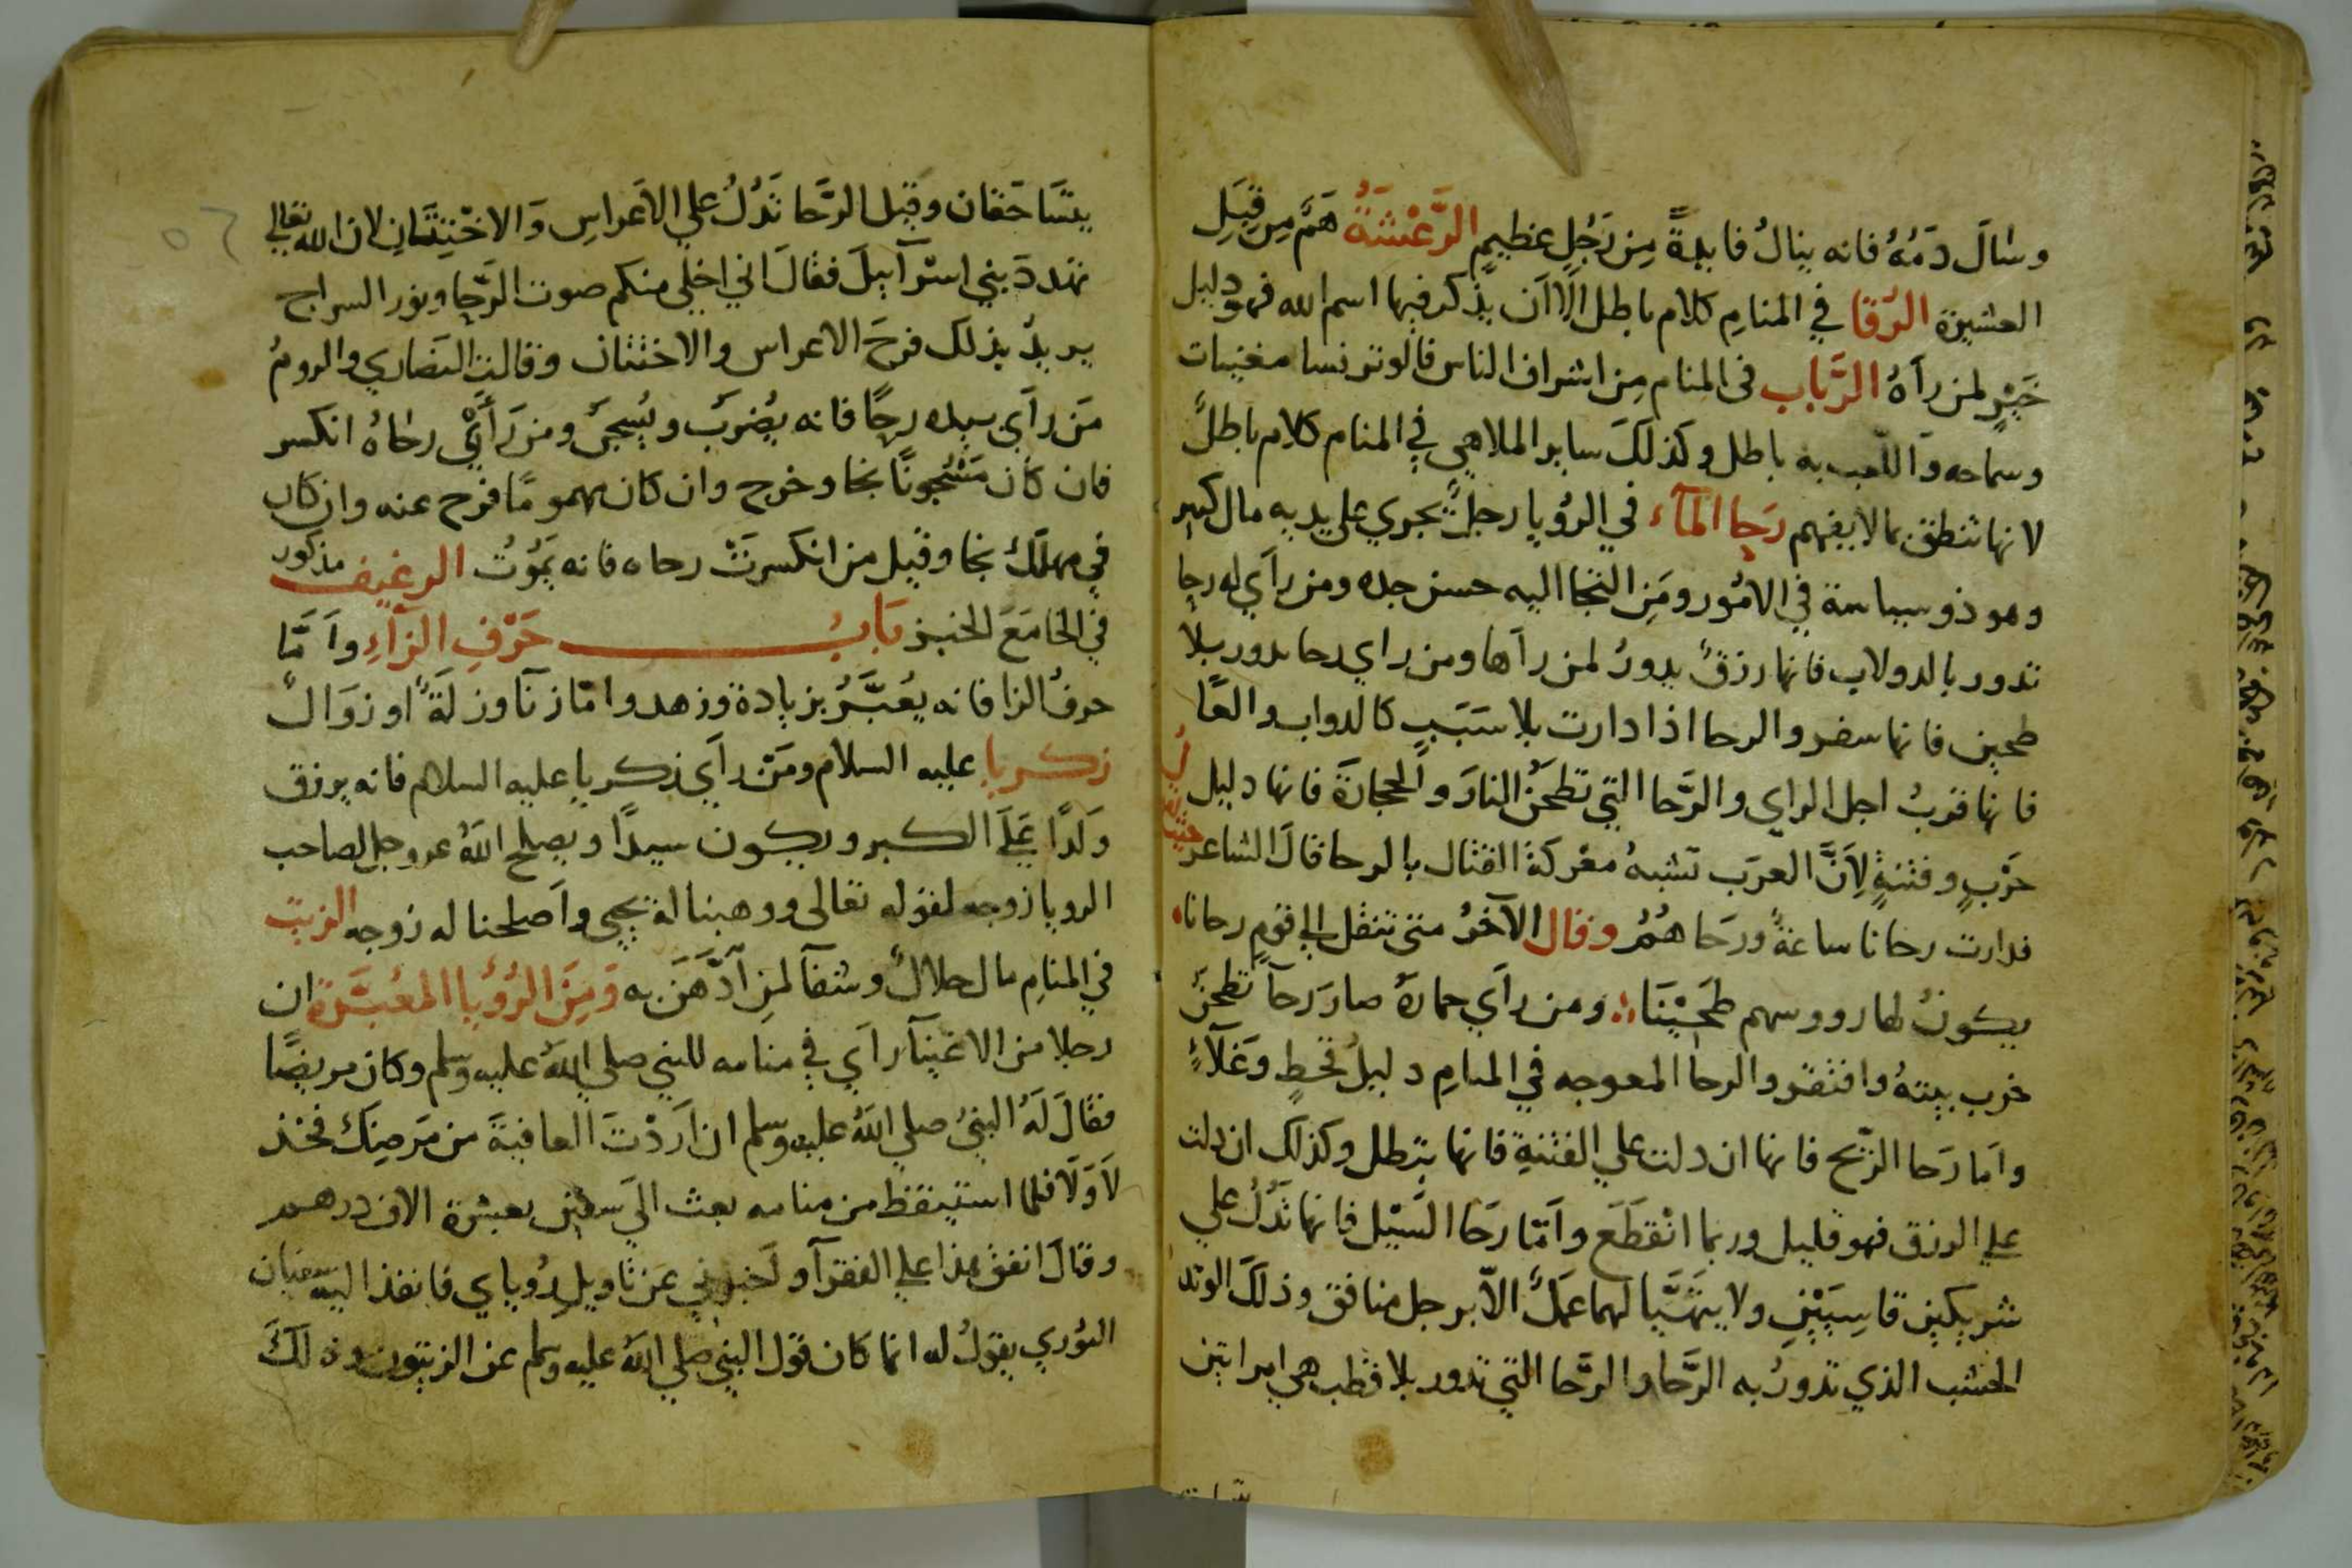 وسَالَ دَمُهُ فانه ينالُ فايدةً مِن رَجُلٍ عظيمٍ الرَّعْشَةُ هَمٌّ مِن قِبَلِ
العشيرة الرُقَا في المنامِ كلام باطل الا ان يذكر فيها اسم الله فهو دليل
خَيْرٍ لمن رآهُ الرَّباب في المنام مِن اشراف الناس قالوتر نسا مغنيات
وسماحه وَاللّعب به باطل وكَذلكَ ساير الملاهي في المنام كلام باطلٌ
لانها تنطق بمالا يفهم رَحا المآء في الرؤيا رجلٌ يجري على يديه مال كثير
وهو ذو سياسة في الامُور ومَنِ التجا اليه حسن جده ومن رآي له رحا
تدور بالدولاب فانها رزقٌ يدورُ لمن رآها ومن راي رحا تدور بلا
طحين فانها سفر والرحا اذا دارت بلا سَبَبٍ كالدواب والمآ
فانها قربُ اجل الراي والرَّحا التي تطحَنُ النارَ والحجارةَ فانها دليل
حَرْبٍ وفتنةٍ لِاَنَّ العرَب تشبهُ معْركةَ القتال بالرحا قالَ الشاعر
فدارت رحانا ساعةً ورَحَاهُمُ وقال الآخرُ متى ننقل الي قومٍ رحانا
يكونُ لها رووسهم طَحِيْنَا ومن رآي حمارهُ صارَ رَحآ تطحَنُ
خرب بيتهُ وافتقر والرحا المعوجه في المنامِ دليلُ قحطٍ وغَلآءٍ
واَما رَحا الرّيح فانها ان دلت علي الفتنةِ فانها تبطل وكذلك ان دلت
علي الرزق فهو قليل وربما انْقطَعَ واَمّا رحَا السَّيْل فانها تَدُلُ علي
شريكين قاسِيَيْنِ ولا يتهَيَّا لهما عمَلٌ الاّ برجل منافق وذلكَ الوتد
الخشب الذي تدورُ به الرَّحا والرَّحا التي تدور بلا قطب هي امراتين
يتسَاحَقان وقيل الرَّحا تَدُلُ علي الاَعراسِ وَالاخْتِتَانِ لان الله تعالي
تهددَ بني اسْرآييلَ فقالَ اني اخلي منكم صوت الرَّحا ونور السراج
يريدُ بذلك فرحَ الاعراس والاختتان وقالت النصاري والرومُ
مَن رآي بيده رحًا فانه يُضرَبُ ويُسجَنُ ومن رَأَيَ رحَاهُ انكسر
فان كَان مَسْجُونًا نجا وخرج وان كان مهمومًا فرح عنه وان كان
في مهلَك نجا وقيل من انكسرتْ رحاه فانه يَمُوْتُ الرغيف مذكور
في الخامَعَ الخبز بَابُ حَرْفِ الزآءِ واَمَّا
حرفُ الزا فانه يُعَبَّرُ بزيادة وزهد وامّا زنآ وزلَةٌ او زوَالٌ
زكريا عليه السلام ومَنْ رآي زكريا عليه السلام فانه يرزق
وَلدًا عَلَي الكبر ويكون سيدًا ويصلح اللهُ عز وجل لصاحب
الرويا زوجه لقوله تعالى ووهبنا له يحيى واَصلحنا له زوجه الزيت
في المنامِ مال حلالٌ وشفآ لمنِ اَدَّهَنَ به وَمِنَ الرُؤيا المعُبَّرة ان
رجلا من الاغنيآ رآي في منامه للنبي صلي اللهُ عليه وسلم وكان مريضًا
فقالَ لَهُ النبيُ صلي اللهُ عليه وسلم ان اَرَدْتَ العافيةَ من مَرضِكَ فخذ
لَاوَلَا فلما استيقظ من منامه بعث الَي سفين بعشرة الاف درهم
وقالَ انفق هذا علي الفقرآ واخبرني عَن تاويلِ رُوياي فانفذ اليه سفيان
الثوري يقولُ له انما كان قول النبي صلي اللهُ عليه وسلم عن الزيتون وذلكَ